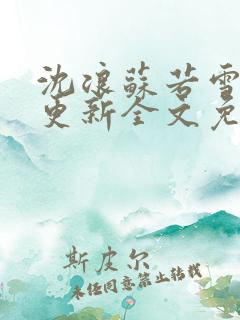 沈浪蘇若雪
更新全文免
斯皮尔
未经同意禁止转载